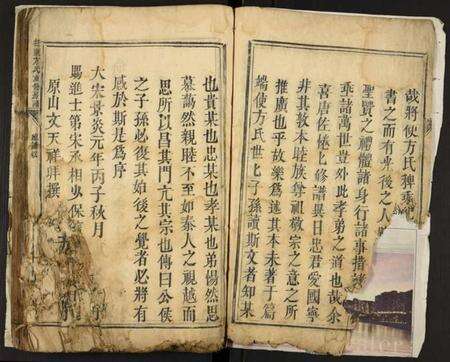 哉將使方氏
書之而有光後之人
聖賢之禮體諸身行諸事措諸
乖諸萬世豈外此孝弟之道也哉余
喜唐佐倦上修譜異日忠君愛國寧
非其敦本睦族尊祖敬宗之意之所
推廣也乎故樂爲述其本末者于篇
端使方氏世上子孫讀斯文者知某
也貴某也忠某也孝某也弟惕然思
慕藹然親睦不至如泰人之視越而
思所以昌其門亢其宗也傳曰公侯
之子孫必復其始後之覺者必將有
感於斯是爲序
大宋景炎元年丙子秋月
賜進士第宋丞相
原山文天祥拜撰